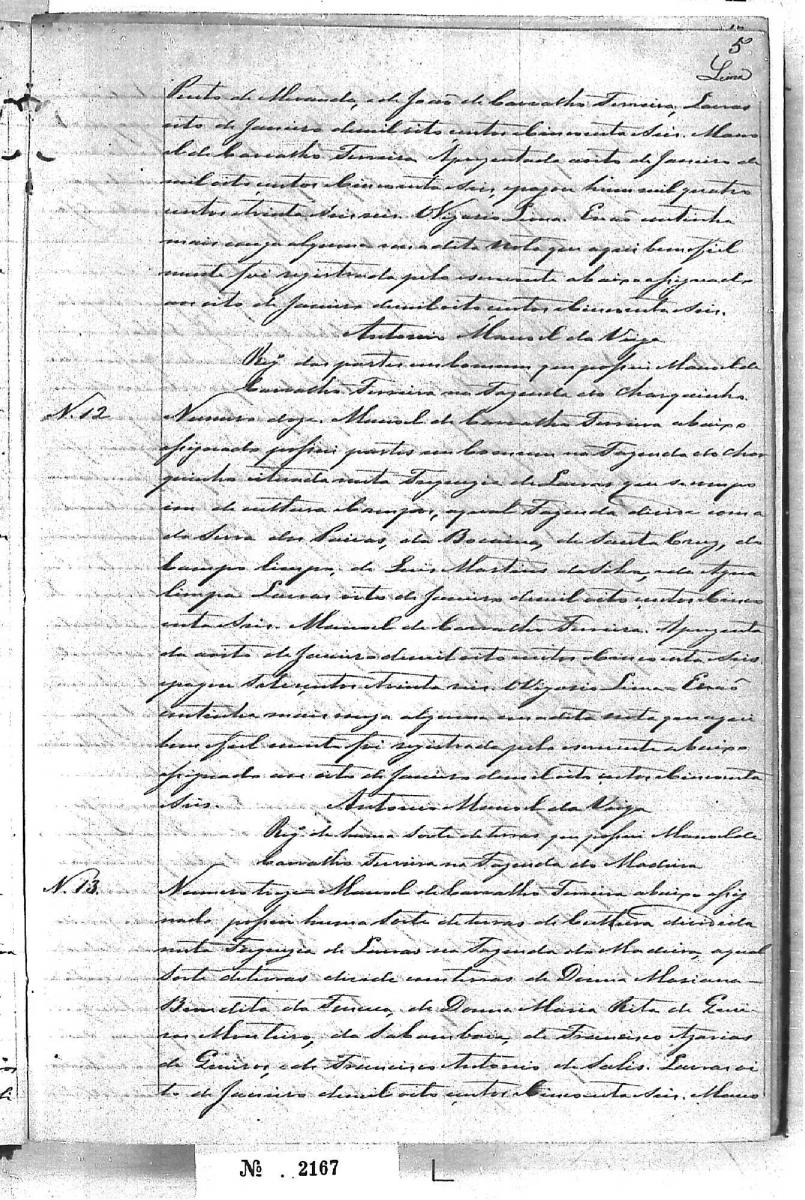 5
Lima
Pinto de Miranda, e de João de Carvalho Ferreira, Lavras
oito de Janeiro de mil oito centos e Cincoenta e Seis. Mano
el de Carvalho Ferreira. Aprezentada a oito de Janeiro de
mil oito centos e Cincoenta e seis, e pagou hum mil quatro
centos e trinta e seis reis. O Vigario Lima. E não continha
mais couza alguma em a dita nota que aqui bem e fiel
mente foi registrada pelo escrevente abaixo assignado
aos oito de Janeiro de mil oito centos e Cincoenta e Seis.
Antonio Manoel da Veiga
Reg. das partes em Commum que possui Manoel de
Carvalho Ferreira na Fazenda do Charquinho.
N. 12
Numero doze. Manoel de Carvalho Ferreira abaixo
assignado possui partes em Commum na Fazenda do Char
quinho cituada nesta Freguezia de Lavras que se compo
em de cultura e Campos, a qual Fazenda divide com a
da Serra dos Paivas, da Bocaina, de Santa Cruz, do
Campo limpo, de Luis Martins da Silva, e da Agua
limpa. Lavras oito de Janeiro de mil oito centos e Cinco
enta e Seis. Manoel de Carvalho Ferreira. Aprezenta
da a oito de Janeiro de mil oito centos e Cincoenta e Seis
e pagou Sete centos e trinta reis. O Vigario Lima = E não
continha mais couza alguma em a dita nota que aqui
bem e fiel mente foi registrada pelo escrevente abaixo
assignado aos oito de Janeiro de mil oito centos e Cincoenta
e Seis. Antonio Manoel da Veiga
Reg. de huma Sorte de terras que possui Manoel de
Carvalho Ferreira na Fazenda do Madeira
N. 13.
Numero treze. Manoel de Carvalho Ferreira abaixo assig
nado, possui huma Sorte de terras de Cultura dividida
nesta Freguezia de Lavras na Fazenda do Madeira, a qual
Sorte de terras divide com terras de Donna Mariana
Benedita da, de Donna Maria Rita de Quei
ros Monteiro, da, de Francisco Azarias
de Queiros, e de Francisco Antonio de Salis. Lavras oi
to de Janeiro de mil oito centos e Cincoenta e Seis. Mano
Nº . 2167